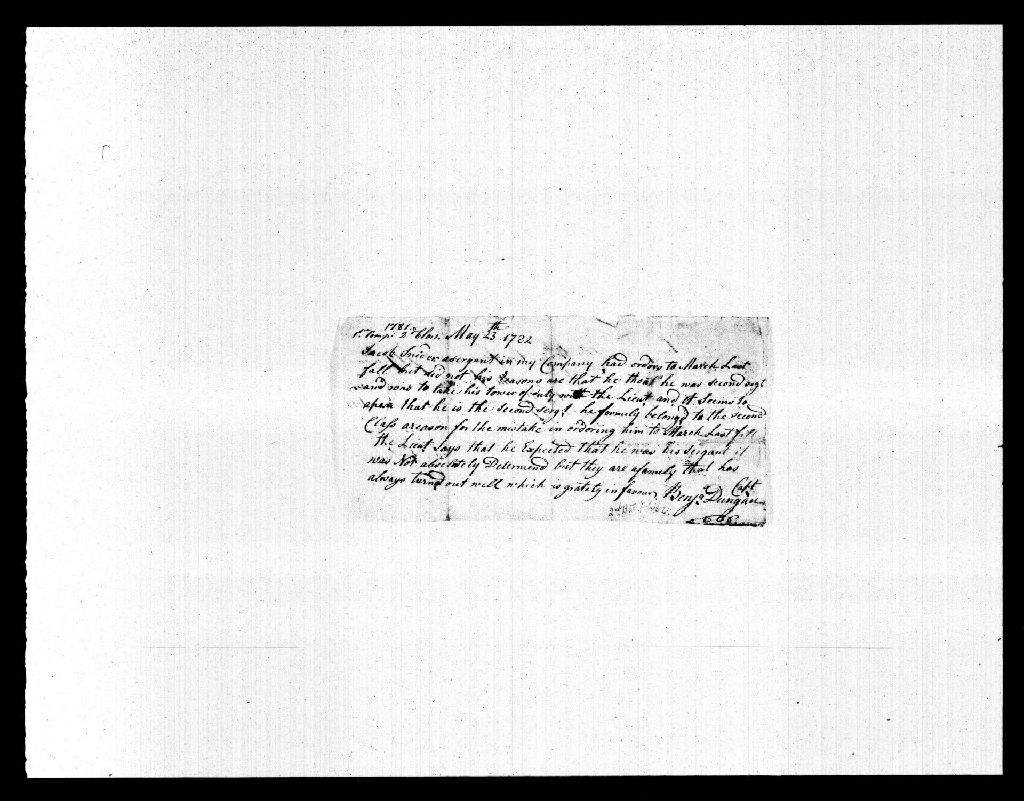 1781
1st Comp. 2d Clas. May 23th 1722
Jacob Snider a sergant in my Company had orders to March Last
fall but did not his reasons are that he thoat he was second sogt
and was to take his tower of duty with the Lieut and it seems to
apear that he is the second sergt he formerly belongd to the second
Class a reason for the mistake in ordering him to March Last fall
the Lieut says that he Expected that he was his sergant it
was Not absolutely Determend but they are a famely that has
always turnd out well which is grately in favour Benja Dungan
Capt